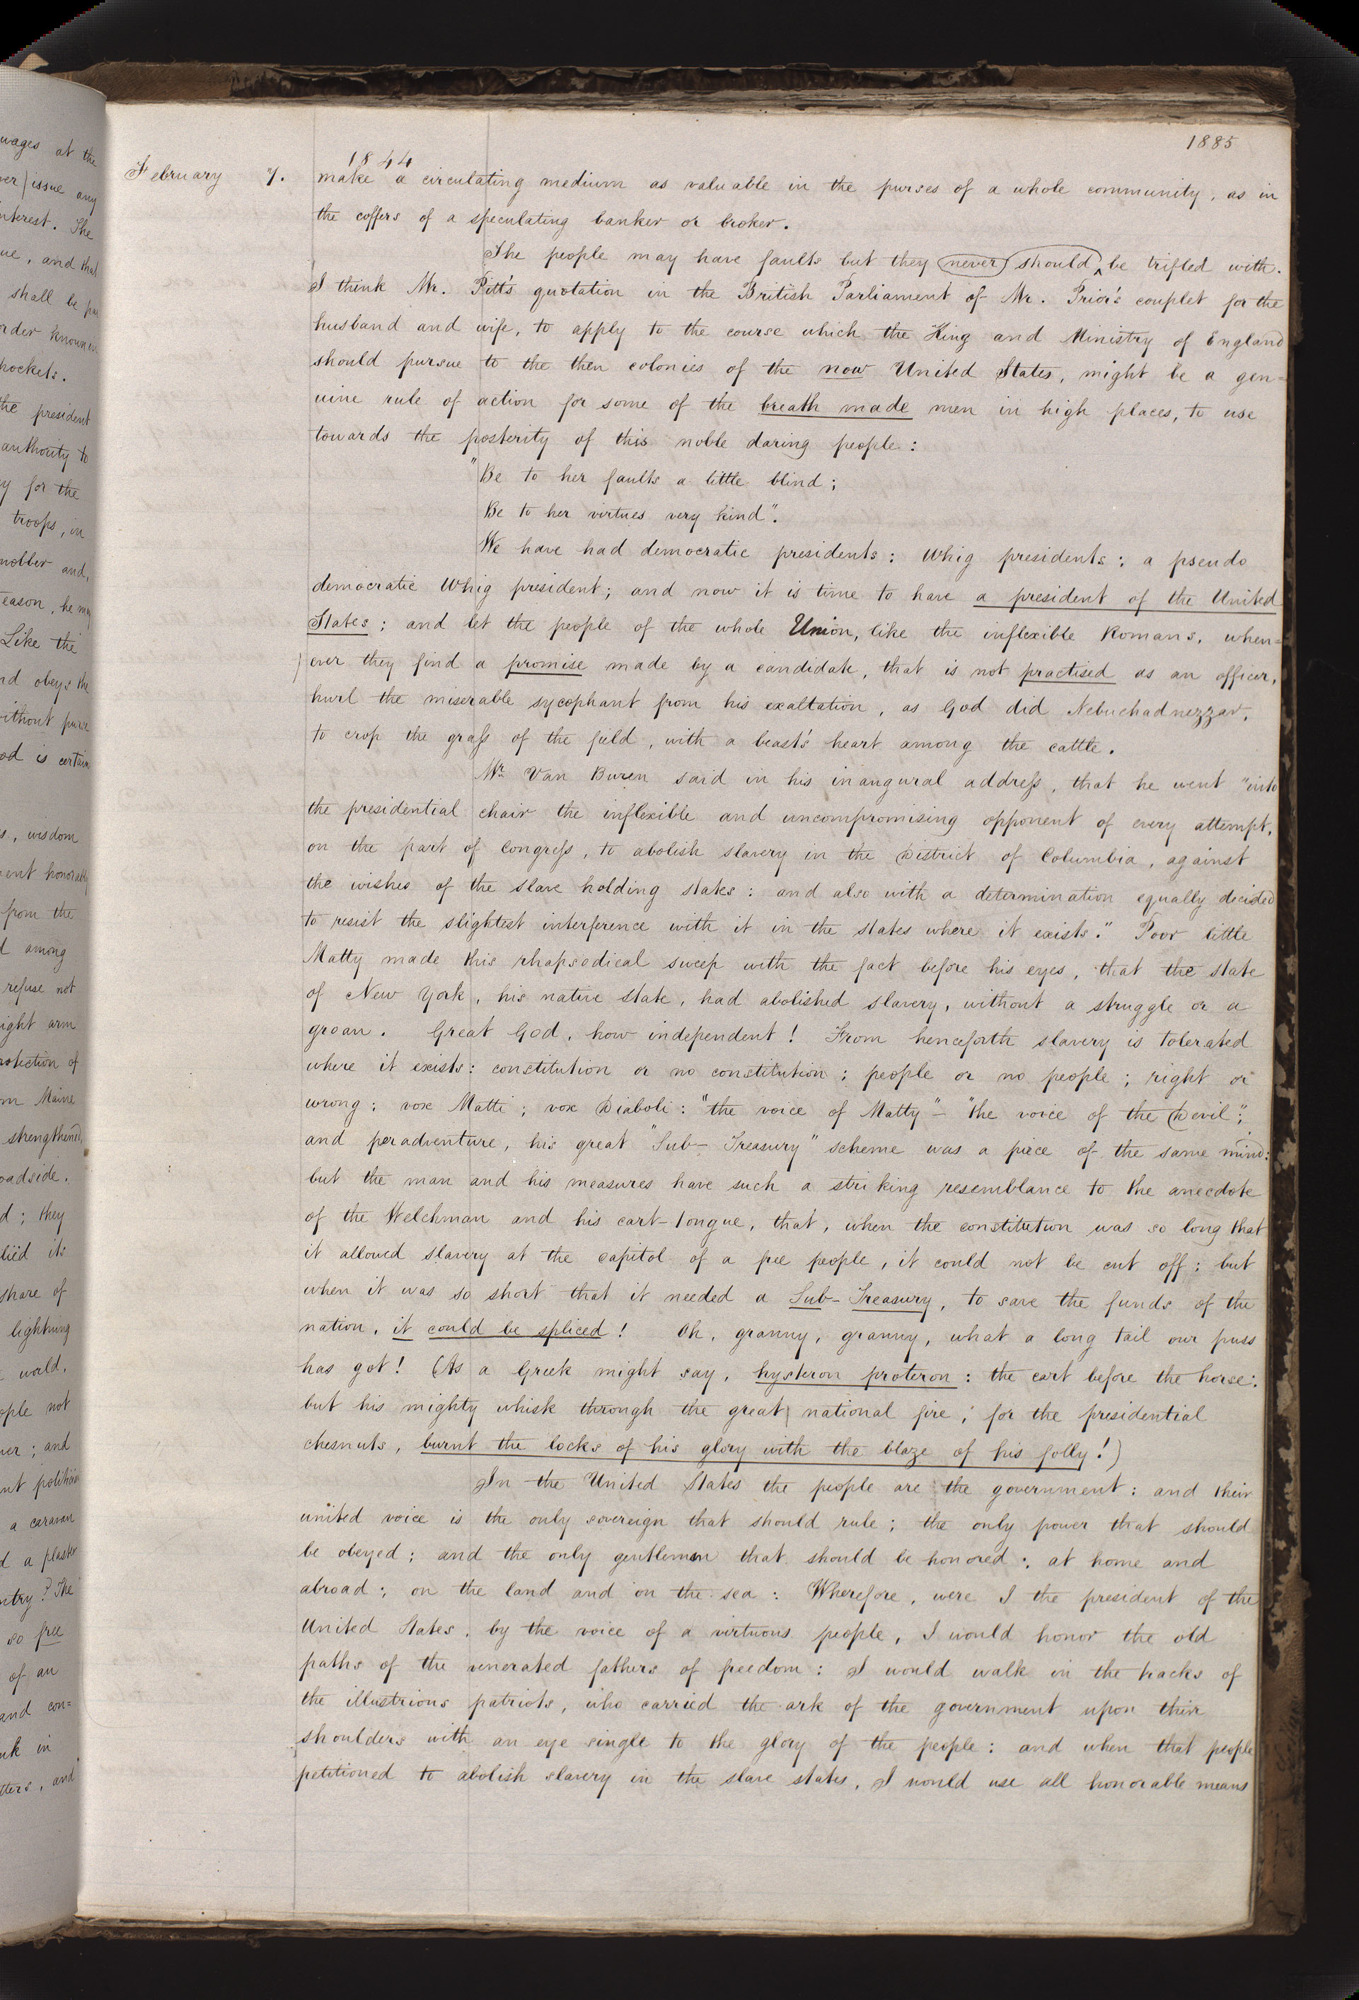 1885
1844
February 7. make a circulating medium as valuable in the purses of a whole community, as in
the coffers of a speculating banker or broker.
The people may have faults but they never should be trifled with.
I think Mr. Pitt's quotation in the British Parliament of Mr. Prior's couplet for the
husband and wife, to apply to the course which the King and Ministry of England
should pursue to the then colonies of the now United States, might be a gen=
uine rule of action for some of the breath made men in high places, to use
towards the posterity of this noble daring people:
"Be to her faults a little blind;
Be to her virtues very kind".
We have had democratic presidents: Whig presidents: a pseudo
democratic Whig president; and now it is time to have a president of the United
States; and let the people of the whole Union, like the inflexible Romans, when=
ever they find a promise made by a candidate, that is not practised as an officer,
hurl the miserable sycophant from his exaltation, as God did Nebuchadnezzar,
to crop the grass of the field, with a beast's heart among the cattle.
Mr. Van Buren said in his inangural address, that he went "into
the presidential chair the inflexible and uncompromising opponent of every attempt,
on the part of Congress, to abolish slavery in the District of Columbia, against
the wishes of the slave holding states: and also with a determination equally decided
to resist the slightest interference with it in the states where it exists." Poor little
Matty made this rhapsodical sweep with the fact before his eyes, that the state
of New York, his native state, had abolished slavery, without a struggle or a
groan. Great God, how independent! From henceforth slavery is tolerated
where it exists: constitution or no constitution; people or no people; right or
wrong; vox Matti; vox Diaboli: "the voice of Matty"— "the voice of the Devil";
and peradventure, his great "Sub-Treasury" scheme was a piece of the same mind:
but the man and his measures have such a striking resemblance to the anecdote
of the Welchman and his cart-tongue, that, when the constitution was so long that
it allowed slavery at the capitol of a free people, it could not be cut off; but
when it was so short that it needed a Sub-Treasury, to save the funds of the
nation, it could be spliced! Oh, granny, granny, what a long tail our puss
has got! (As a Greek might say, hysteron proteron: the cart before the horse:
but his mighty whisk through the great national fire, for the presidential
chesnuts, burnt the locks of his glory with the blaze of his folly!)
In the United States the people are the government: and their
united voice is the only sovereign that should rule; the only power that should
be obeyed; and the only gentlemen that should be honored; at home and
abroad; on the land and on the sea: Wherefore, were I the president of the
United States, by the voice of a virtuous people, I would honor the old
paths of the venerated fathers of freedom: I would walk in the tracks of
the illustrious patriots, who carried the ark of the government upon their
shoulders with an eye single to the glory of the people: and when that people
petitioned to abolish slavery in the slave states, I would use all honorable means